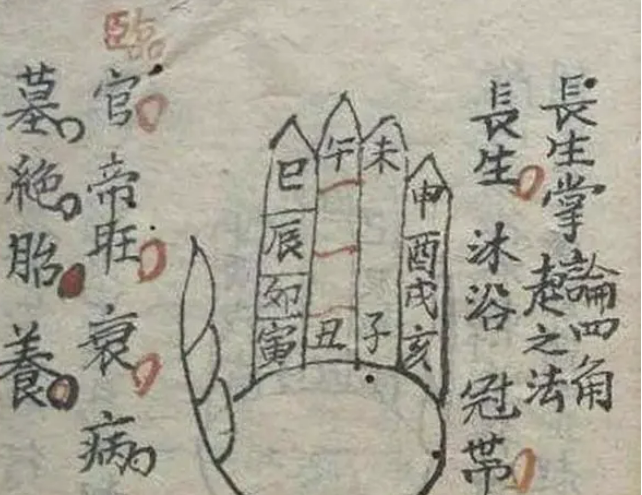 長生掌論四角
起之法
長生沐浴冠帶
臨官帝旺衰病
墓絶胎養
巳午未申
辰酉
卯戌
寅丑子亥